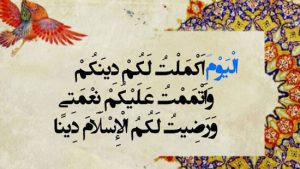 الْيَوْمَ اَكْمَلْتُ لَكُمْ دِينَكُمْ
وَاَتْمَمْتُ عَلَيْكُمْ نِعْمَتي
وَرَضِيتُ لَكُمُ الْاِسْلَامَ دِينًا